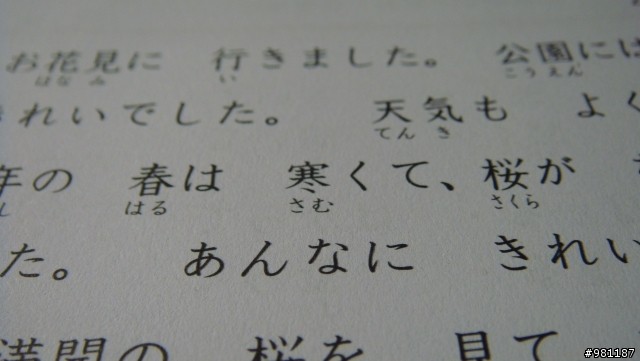 お花見に 行きました。 公園には
はなみ い こうえん
きれいでした。 天気も よく
てんき
年の 春は 寒くて、桜が
し はる さむ さくら
た。 あんなに きれい
満開の 桜を 見て
#981187